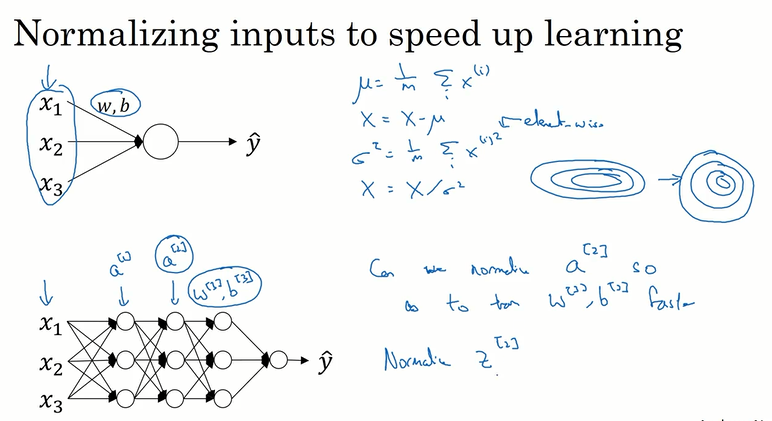 Normalizing inputs to speed up learning
x₁
x₂
x₃
w, b
ŷ
μ = 1/m Σᵢ x⁽ⁱ⁾
X = X - μ
σ² = 1/m Σᵢ x⁽ⁱ⁾²
element-wise
X = X/σ²
a[1]
a[2]
w[3], b[3]
x₁
x₂
x₃
ŷ
Can we normalize a[2] so
as to train w[3], b[3] faster
Normalize z[2]